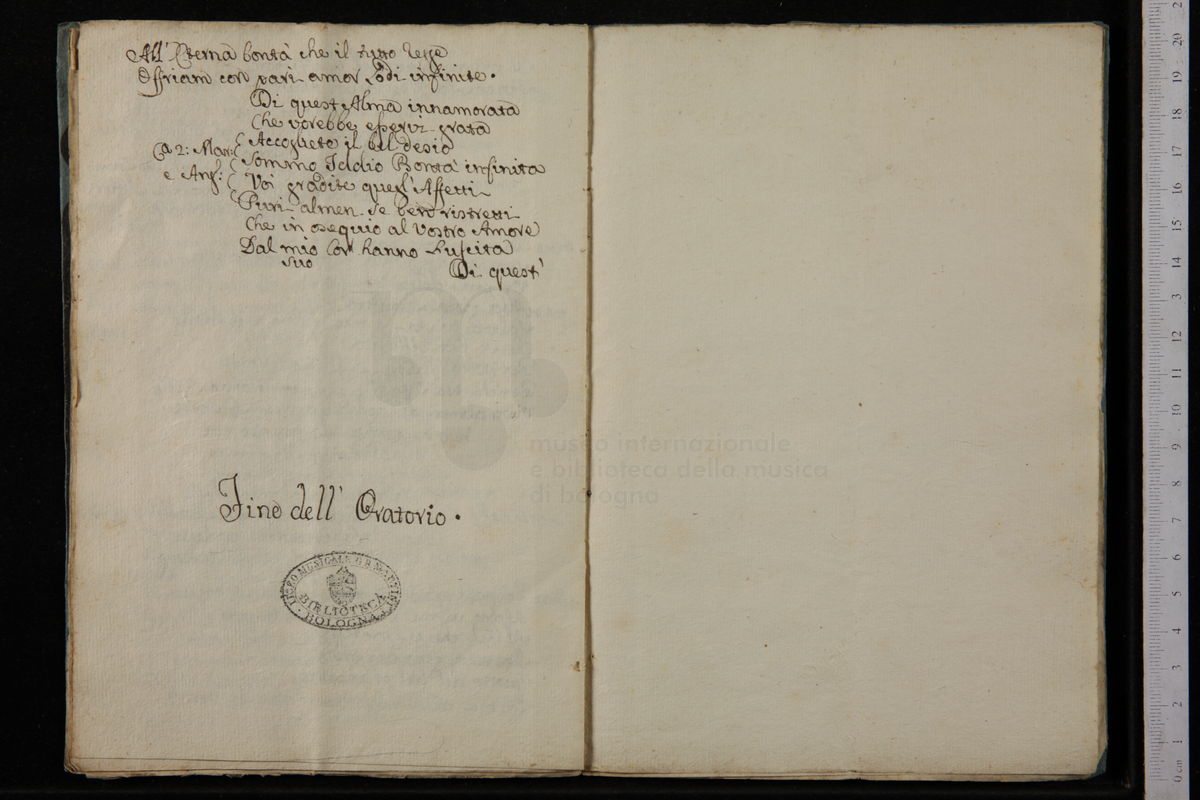 All' Eterna bontà che il tutto regge
Offriam con pari amor Lodi infinite.
Di quest'Alma innamorata
Che vorebbe esservi grata
Accogliete il bel desio
a 2: Mar:
Sommo Iddio Bontà infinita
e Ang:
Voi gradite quegl'Affetti
Puri almen se ben ristretti
Che in osequio al Vostro Amore
Dal mio Cor hanno L'uscita
suo
Di quest'
Fine dell' Oratorio.
LICEO MUSICALE G. B. MARTINI
BIBLIOTECA
BOLOGNA
museo internazionale
e biblioteca della musica
di bologna
0 cm 1 2 3 4 5 6 7 8 9 10 11 12 13 14 15 16 17 18 19 20